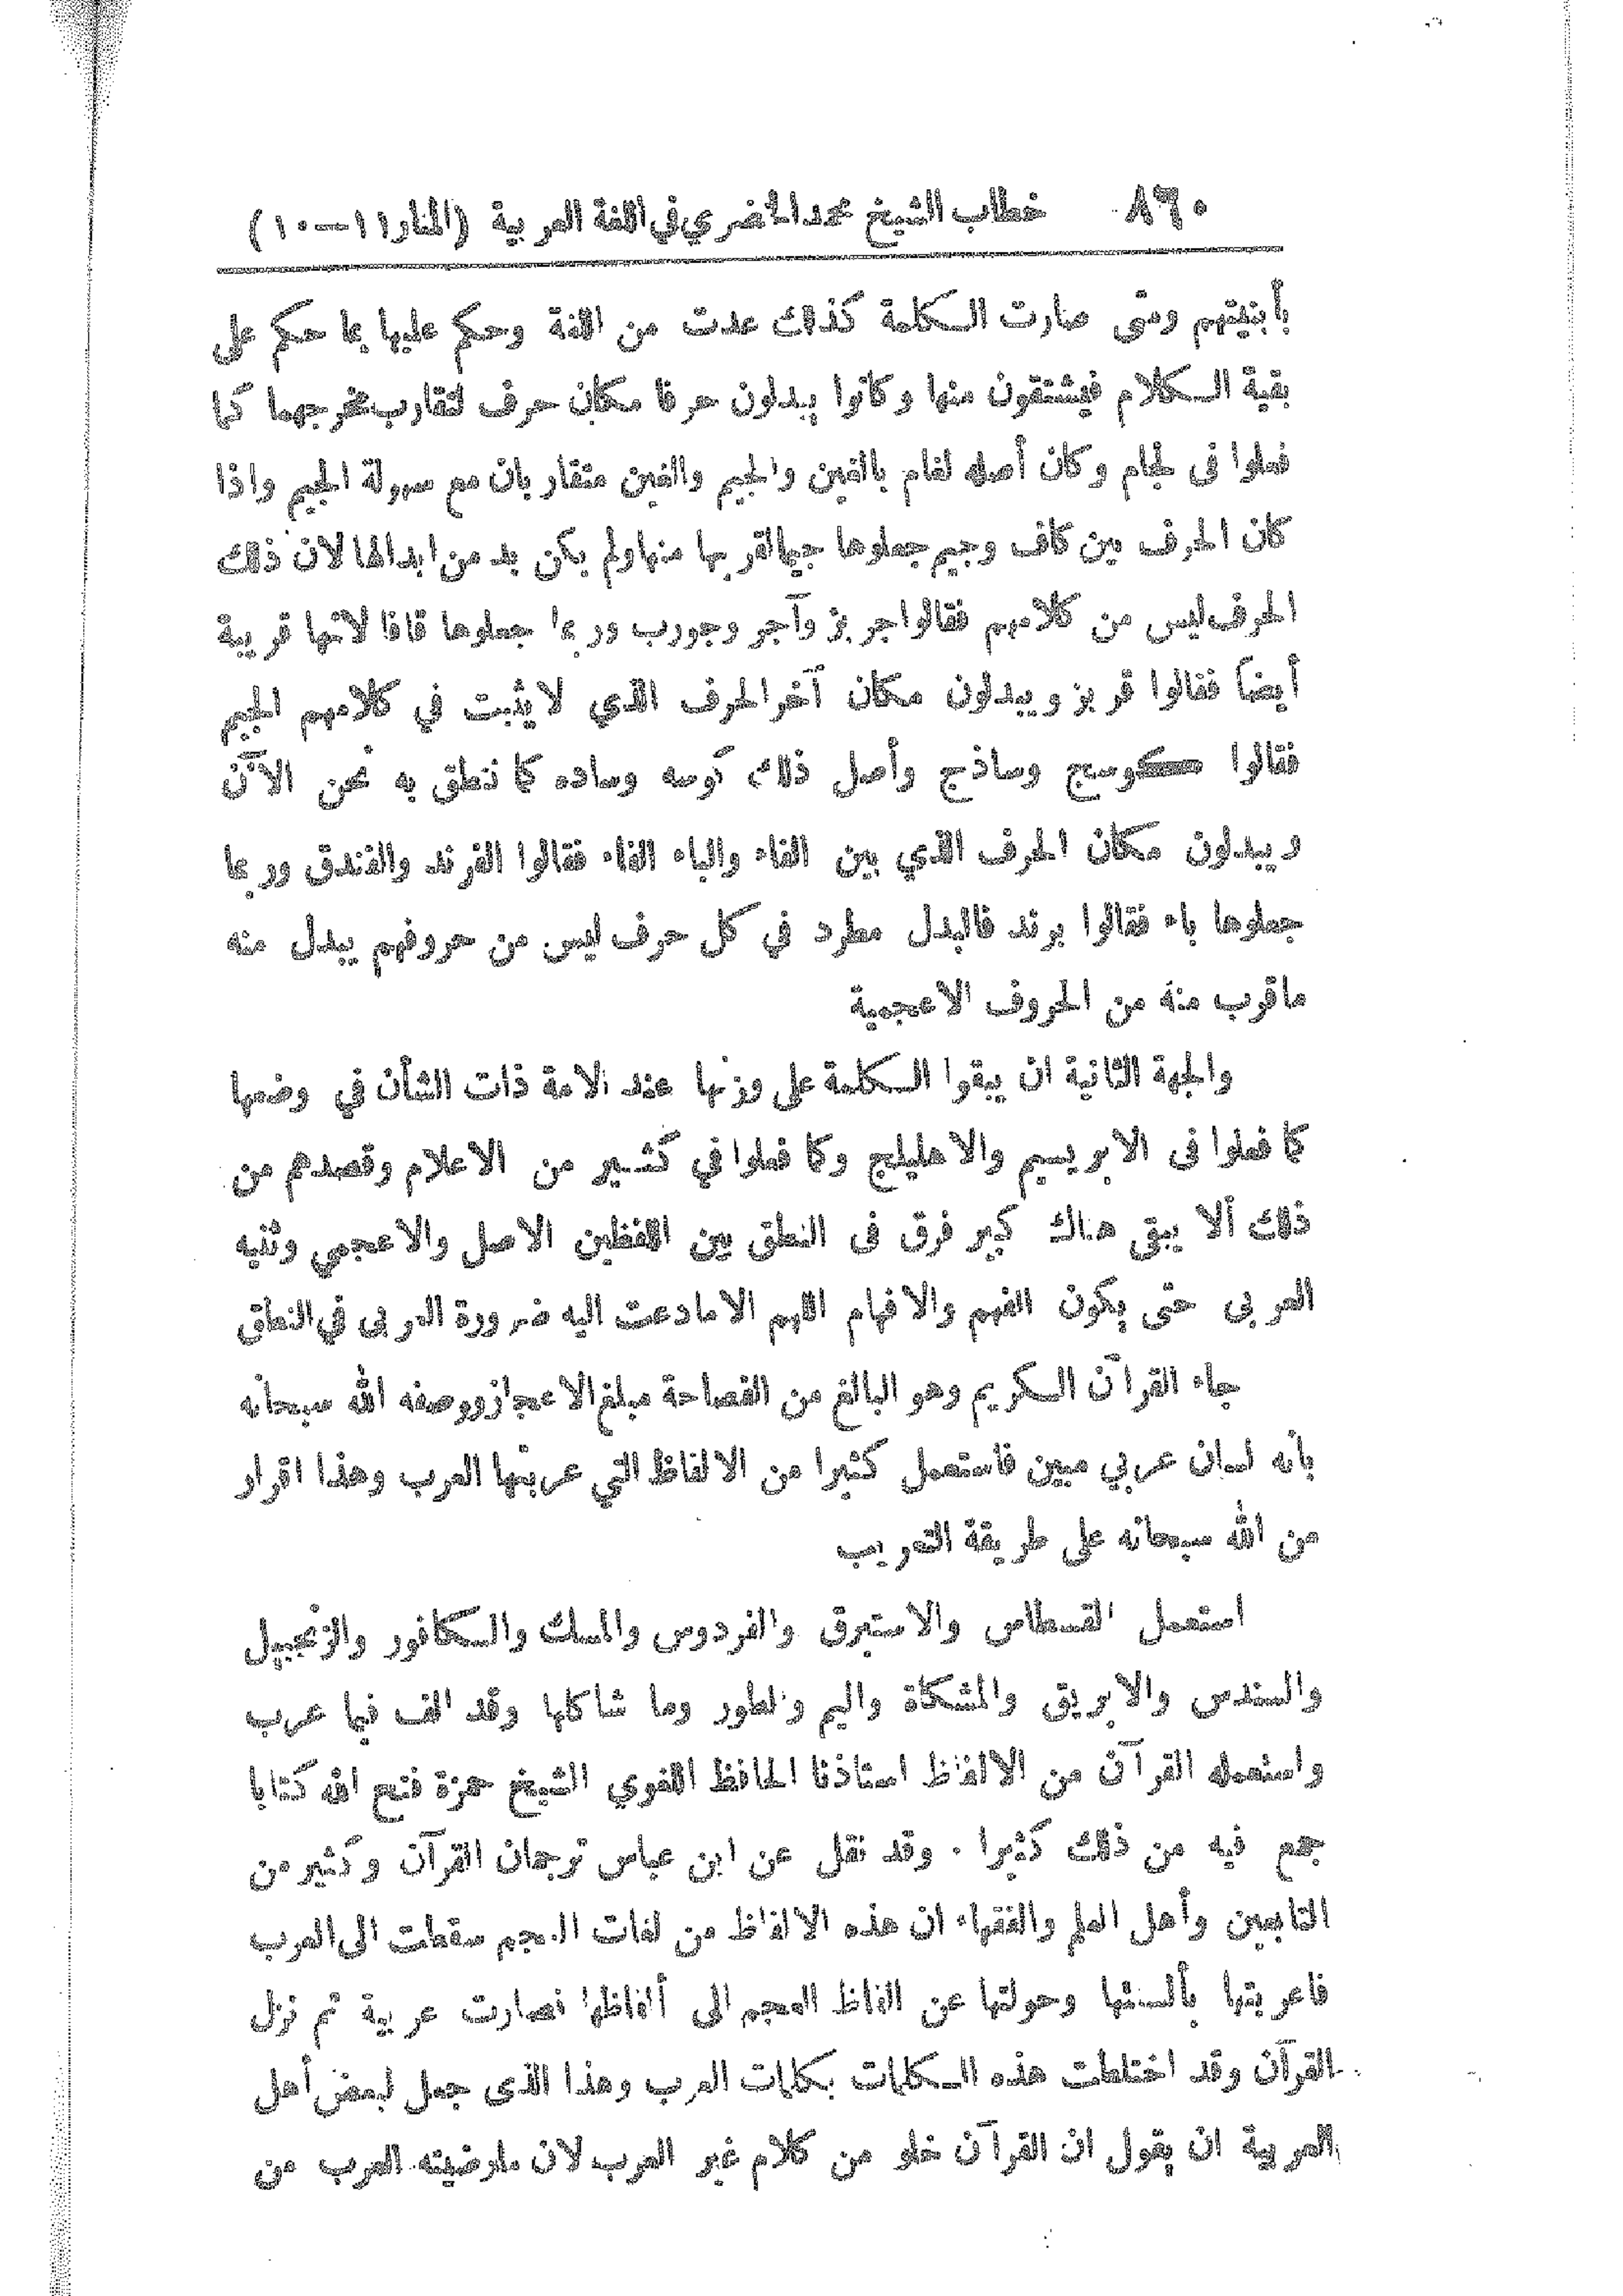 ٨٦٠ خطاب الشيخ محمد الخضري في اللغة العربية (المنار١١—١٠)
بأبنيتهم ومتى صارت الكلمة كذلك عدت من اللغة وحكم عليها بما حكم على
بقية الكلام فيشتقون منها وكانوا يبدلون حرفا مكان حرف لتقارب مخرجهما كما
فعلوا فى لجام وكان أصله لغام بالغين والجيم والغين متقاربان مع سهولة الجيم واذا
كان الحرف بين كاف وجيم جعلوها جيما لقربها منها ولم يكن بد من ابدالها لان ذلك
الحرف ليس من كلامهم فقالوا جربز وآجر وجورب وربما جعلوها قافا لانها قريبة
أيضاً فقالوا قربز ويبدلون مكان آخر الحرف الذي لا يثبت في كلامهم الجيم
فقالوا كوسج وساذج وأصل ذلك كوسه وساده كما ننطق به نحن الآن
ويبدلون مكان الحرف الذي بين الفاء والباء الفاء فقالوا الفرند والفندق وربما
جعلوها باء فقالوا برند فالبدل مطرد في كل حرف ليس من حروفهم يبدل منه
ماقرب منه من الحروف الاعجمية
والجهة الثانية ان يبقوا الكلمة على وزنها عند الامة ذات الشأن في وضعها
كما فعلوا فى الابريسيم والاهليلج وكما فعلوا في كثير من الاعلام وقصدهم من
ذلك ألا يبقى هناك كبير فرق فى النطق بين اللفظين الاصل والاعجمي وثنيه
العربى حتى يكون الفهم والافهام اللهم الا مادعت اليه ضرورة العربى في النطق
جاء القرآن الكريم وهو البالغ من الفصاحة مبلغ الاعجاز ووصفه الله سبحانه
بأنه لسان عربي مبين فاستعمل كثيرا من الالفاظ التي عربتها العرب وهذا اقرار
من الله سبحانه على طريقة التعريب
استعمل القسطاس والاستبرق والفردوس والمسك والكافور والزنجبيل
والسندس والابريق والمشكاة واليم والطور وما شاكلها وقد الف فيما عرب
واستعمله القرآن من الالفاظ استاذنا الحافظ اللغوي الشيخ حمزة فتح الله كتابا
جمع فيه من ذلك كثيرا . وقد نقل عن ابن عباس ترجمان القرآن وكثير من
التابعين وأهل العلم والفقهاء ان هذه الالفاظ من لغات العجم سقطت الى العرب
فاعربتها بألسنتها وحولتها عن الفاظ العجم الى ألفاظها فصارت عربية ثم نزل
القرآن وقد اختلطت هذه الكلمات بكلمات العرب وهذا الذى جعل لبعض أهل
العربية ان يقول ان القرآن خلو من كلام غير العرب لان مارضيته العرب من